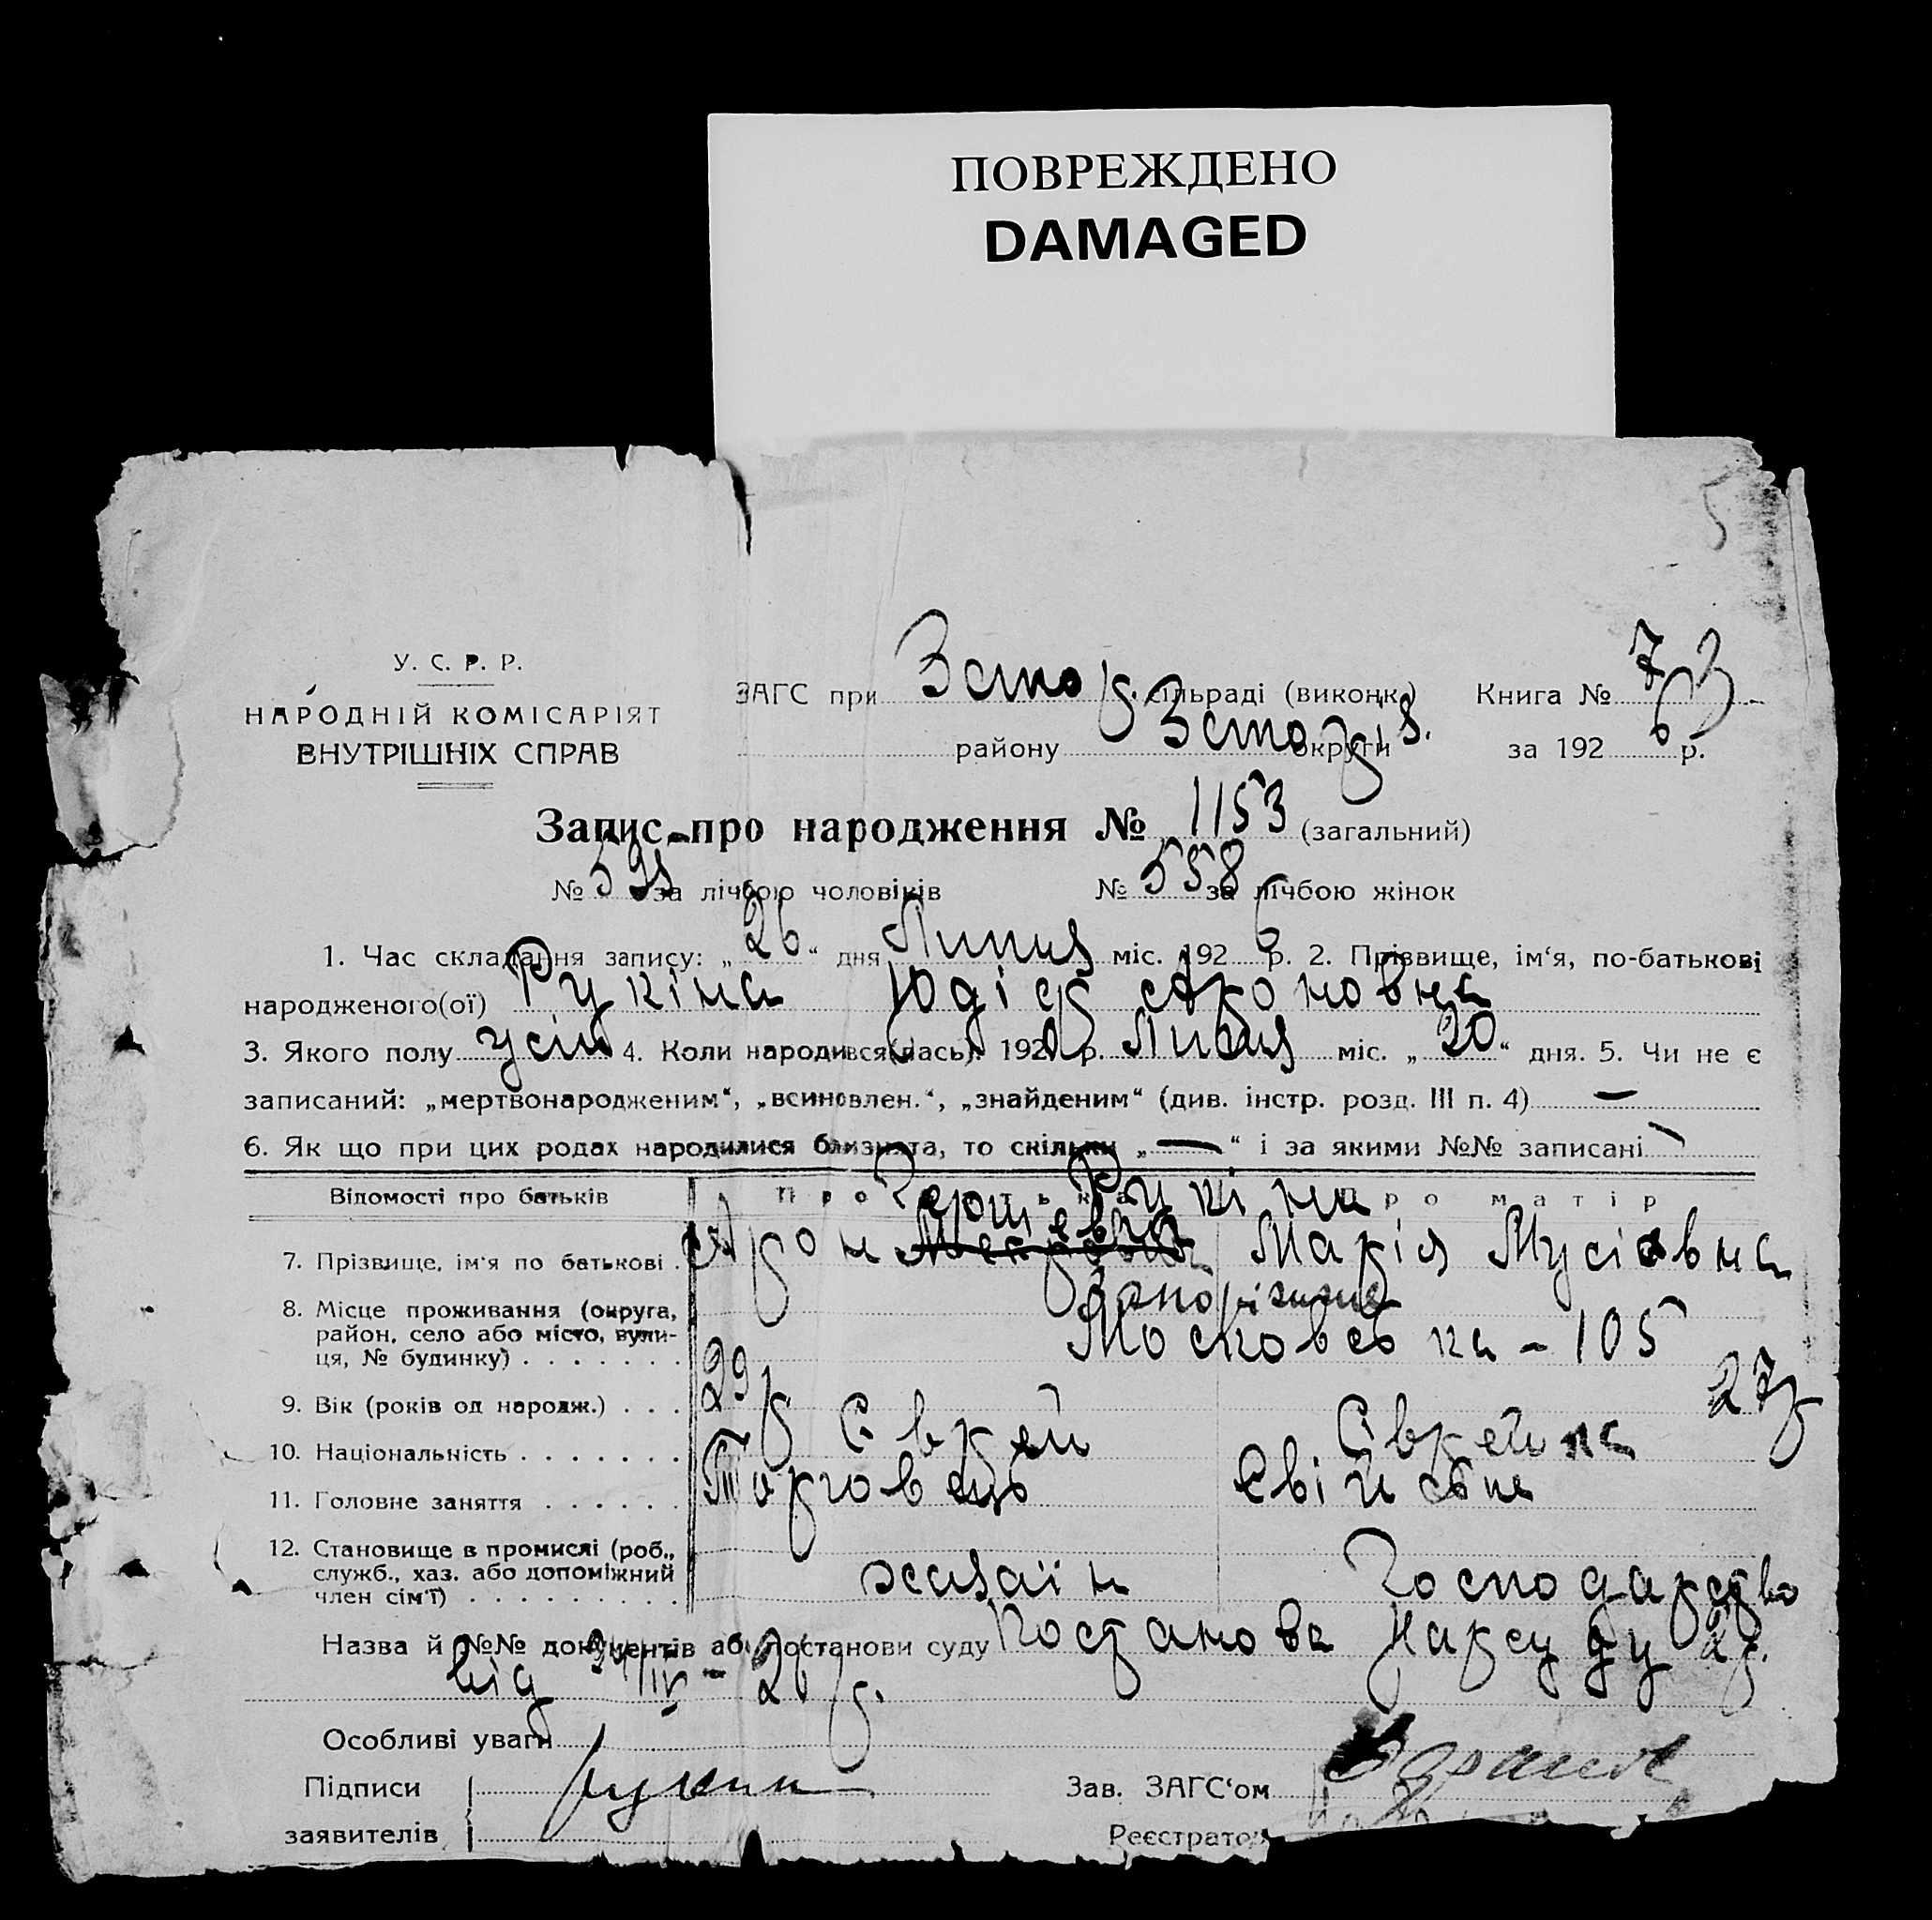 ПОВРЕЖДЕНО
DAMAGED
5
У. С. Р. Р.
НАРОДНІЙ КОМІСАРІЯТ
ВНУТРІШНІХ СПРАВ
ЗАГС при сільраді (виконк.) Книга № 7
району округи за 192 6 р.
Запис про народження № 1153 (загальний)
№ 595 за лічбою чоловіків № 558 за лічбою жінок
1. Час складання запису: „ 26 “ дня Липня міс. 192 6 р. 2. Прізвище, ім‘я, по-батькові
народженого(ої) Рукіна Юдіф Ароновна
3. Якого полу 4. Коли народився(лась): 192 р. Липня міс. „ 20 “ дня. 5. Чи не є
записаний: „мертвонародженим“, „всиновлен.“, „знайденим“ (див. інстр. розд. III п. 4) —
6. Як що при цих родах народилися близнята, то скільки „ — “ і за якими №№ записані —
Відомості про батьків Про батька Про матір
Рукіни
7. Прізвище, ім‘я по батькові . Арон Маркія Мусіовна
8. Місце проживання (округа, Запоріжже
район, село або місто, вули- Московська - 105
ця, № будинку) . . . . . . .
9. Вік (років од народж.) . . . 29 р 27 р
10. Національність . . . . . . . Єврей Єврейка
11. Головне заняття . . . . . . Торговець
12. Становище в промислі (роб.,
служб., хаз. або допоміжний хазяїн господарство
член сім‘ї) . . . . . . . . .
Назва й №№ документів або постанови суду Постанова Нарсуду 2 р.
від 26 р.
Особливі уваги
Підписи Рукин Зав. ЗАГС‘ом
заявителів Реєстратор